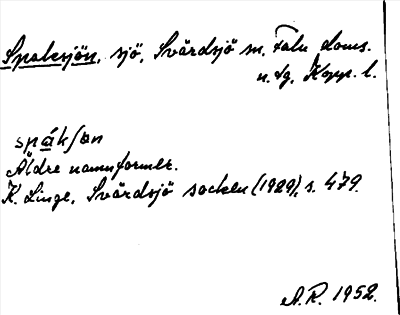 Spaksjön, sjö, Svärdsjö sn. Falu doms.
n. tg, Kopp. l.
spákſøn
Äldre namnformer.
K. Linge, Svärdsjö socken (1929), s. 479.
A.R. 1952.